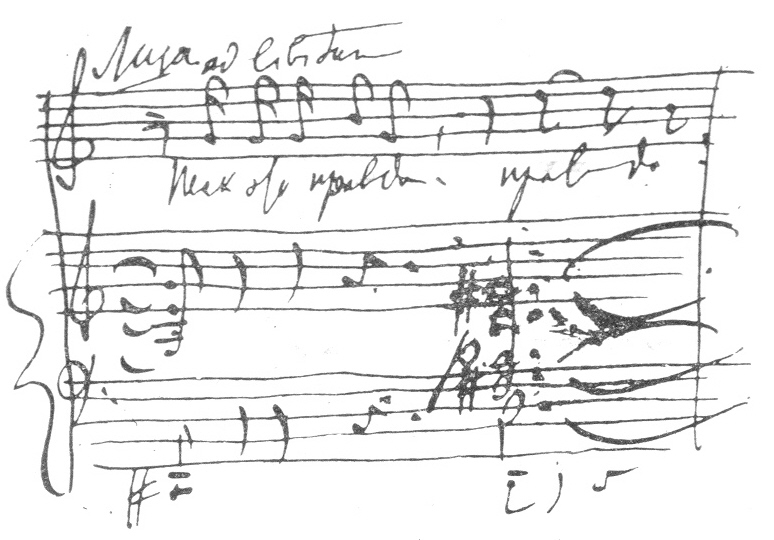 Лиза ad libitum
Так это правда. правда